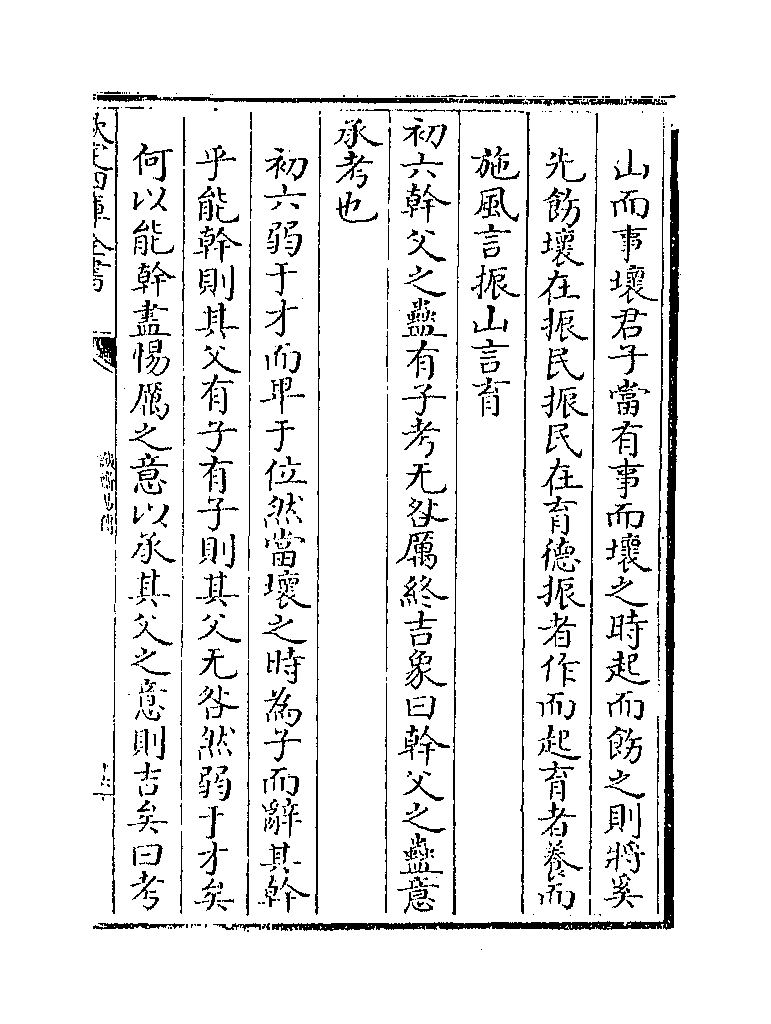 山而事壞君子當有事而壞之時起而飭之則將奚
先飭壞在振民振民在育德振者作而起育者養而
施風言振山言育
初六幹父之蠱有子考无咎厲終吉象曰幹父之蠱意
承考也
初六弱于才而卑于位然當壞之時為子而辭其幹
乎能幹則其父有子有子則其父无咎然弱于才矣
何以能幹盡惕厲之意以承其父之意則吉矣曰考
欽定四庫全書
誠齋易傳